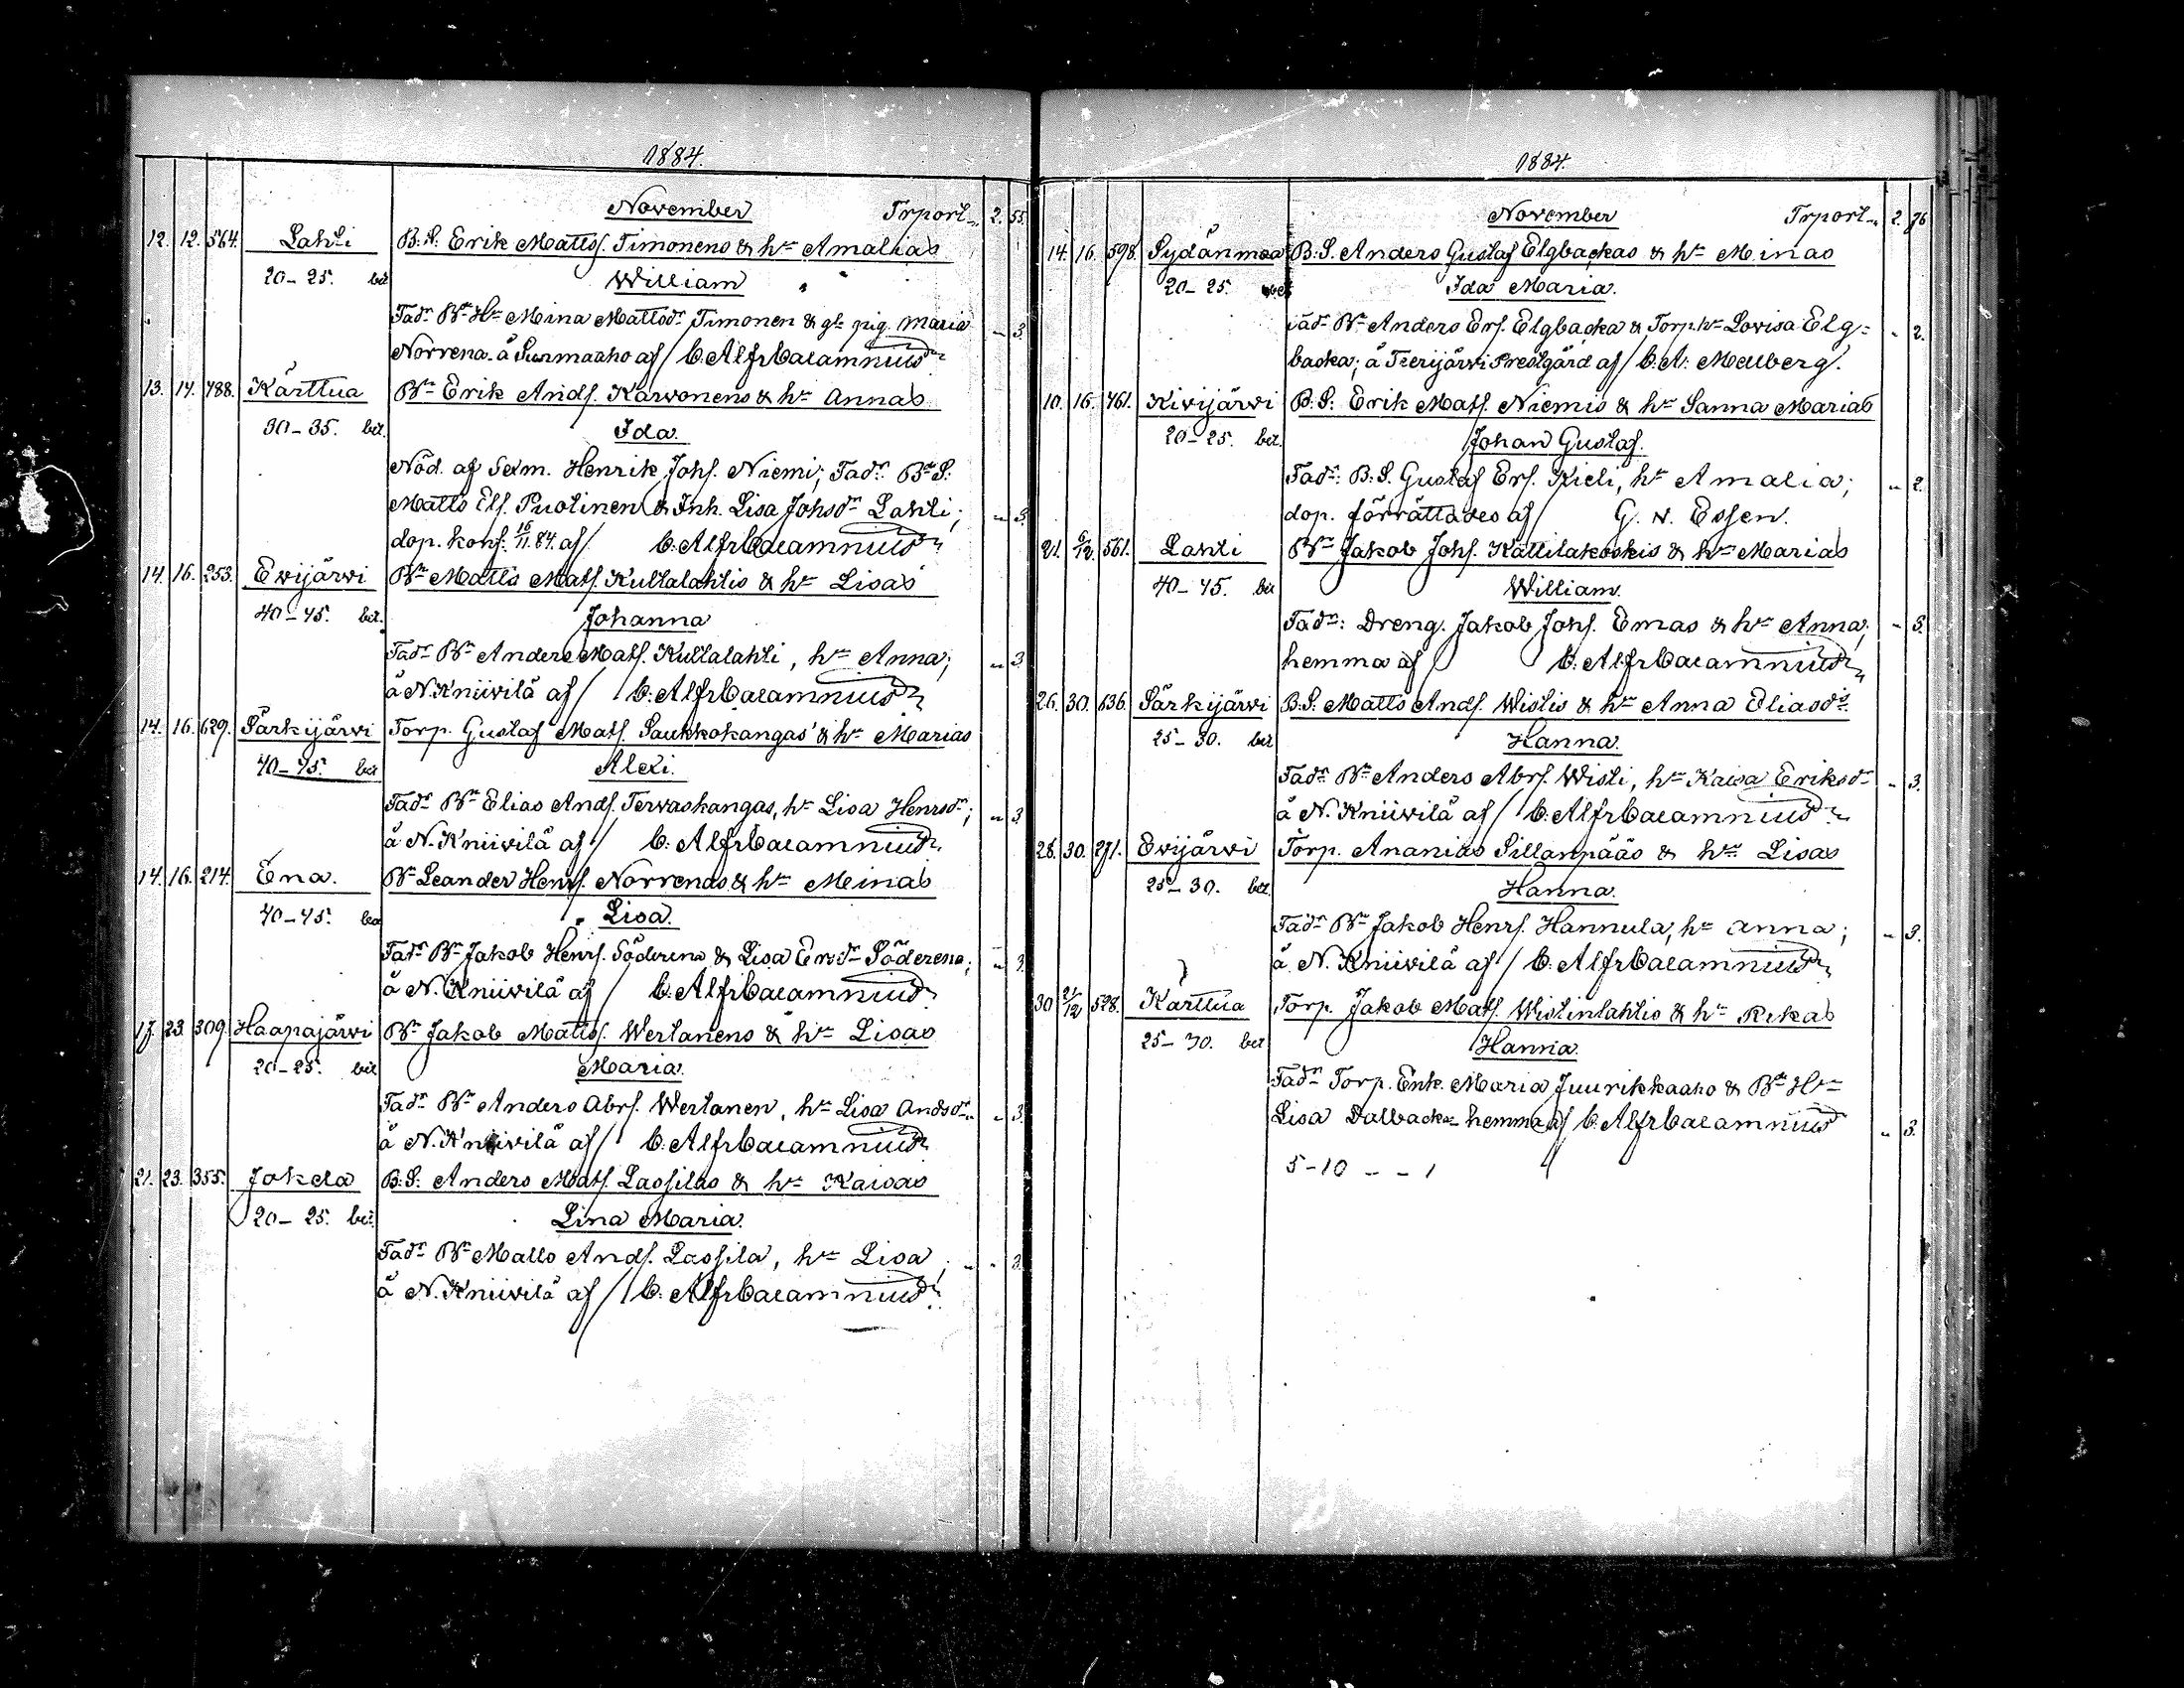 1884.
November Trport. 2. 55.
12. 12. 564. Lahti B. S. Erik Mattss. Timonens & hn Amalias
20-25. bet William
Fadr Bn Hn Mina Mattsdr Timonen & gft pig. Maria
Norrena å Surmaaho af / C. Alfr Calamnius " 3.
13. 14. 488. Kärttua Bn Erik Ands. Karvonens & hn Annas
30-35. bet. Ida.
Nöd. af Sexm. Henrik Johs. Niemi; Fadr Bn S.
Matts Els. Puolinen & Inh. Lisa Johsdr Lahti; " 3.
dop. konf. 16/11.84. af / C. Alfr Calamnius
14. 16. 253. Ewijärwi Bn Matts Mats. Kultalahtis & hn Lisas
40-45. bet. Johanna
Fadr Bn Anders Mats. Kultalahti, hn Anna; " 3
å N. Kniivilä af / C. Alfr Calamnius
14. 16. 629. Särkijärwi Torp. Gustaf Mats. Saukkokangas' & hn Marias
40-45. bet Alexi.
Fadr Bn Elias Ands. Terwaskangas, hn Lisa Henrsdr; " 3.
å N. Kniivilä af / C. Alfr Calamnius
14. 16. 214. Ena. Bn Leander Henrs. Norrenas & hn Minas
40-45. bet Lisa.
Fadr Bn Jakob Henrs. Söderena & Lisa Ersdr Söderena; " 3.
å N. Kniivilä af / C. Alfr Calamnius
17. 23. 309. Haapajärwi Bn Jakob Mattss. Wertanens & hn Lisas
20-25. bet Maria.
Fadr Bn Anders Abrs. Wertanen, hn Lisa Andsdr " 3.
å N. Kniivilä af / C. Alfr Calamnius
21. 23. 355. Jokela B. S. Anders Mats. Lassilas & hn Kaisas
20-25. bet. Lina Maria.
Fadr Bn Matts Ands. Lassila, hn Lisa; " 3.
å N. Kniivilä af / C. Alfr Calamnius
1884.
November Trport. 2. 76
14. 16. 598. Sydänmaa B. S. Anders Gustaf Elgbackas & hn Minas
20-25. bet Ida Maria.
Fadr Bn Anders Ers. Elgbacka & Torp. hn Lovisa Elg- " 2.
backa; å Terijärwi Prestgård af / C. A. Medberg.
10. 16. 461. Kivijärwi B. S. Erik Mats. Niemis & hn Sanna Marias
20-25. bet. Johan Gustaf.
Fadr: B. S. Gustaf Ers. Kieli, hn Amalia; " 2.
dop. förrättades af / G. N. Essen.
21. 6/12. 561. Lahti Bn Jakob Johs. Kattilakoskis & hn Marias
40-45. bet William.
Fadr: Dreng. Jakob Johs. Emas & hn Anna; " 3.
hemma af / C. Alfr Calamnius
26. 30. 636. Särkijärwi B. S. Matts Ands. Wistis & hn Anna Eliasdrs
25-30. bet Hanna.
Fadr Bn Anders Abrs. Wisti, hn Kaisa Eriksdr " 3.
å N. Kniivilä af / C. Alfr Calamnius
28. 30. 271. Ewijärwi Torp. Ananias Sillanpääs & hn Lisas
25-30. bet. Hanna.
Fadr Bn Jakob Henrs. Hannula, hn Anna; " 3.
å N. Kniivilä af / C. Alfr Calamnius
30 21/12 528. Kärttua Torp. Jakob Mats. Wistinlahtis & hn Rikas
25-30. bet Hanna.
Fadr Torp. Enk. Maria Juurikkaaho & Bn Hn
Lisa Dalbacka hemma af / C. Alfr Calamnius " 3.
5-10 - - 1